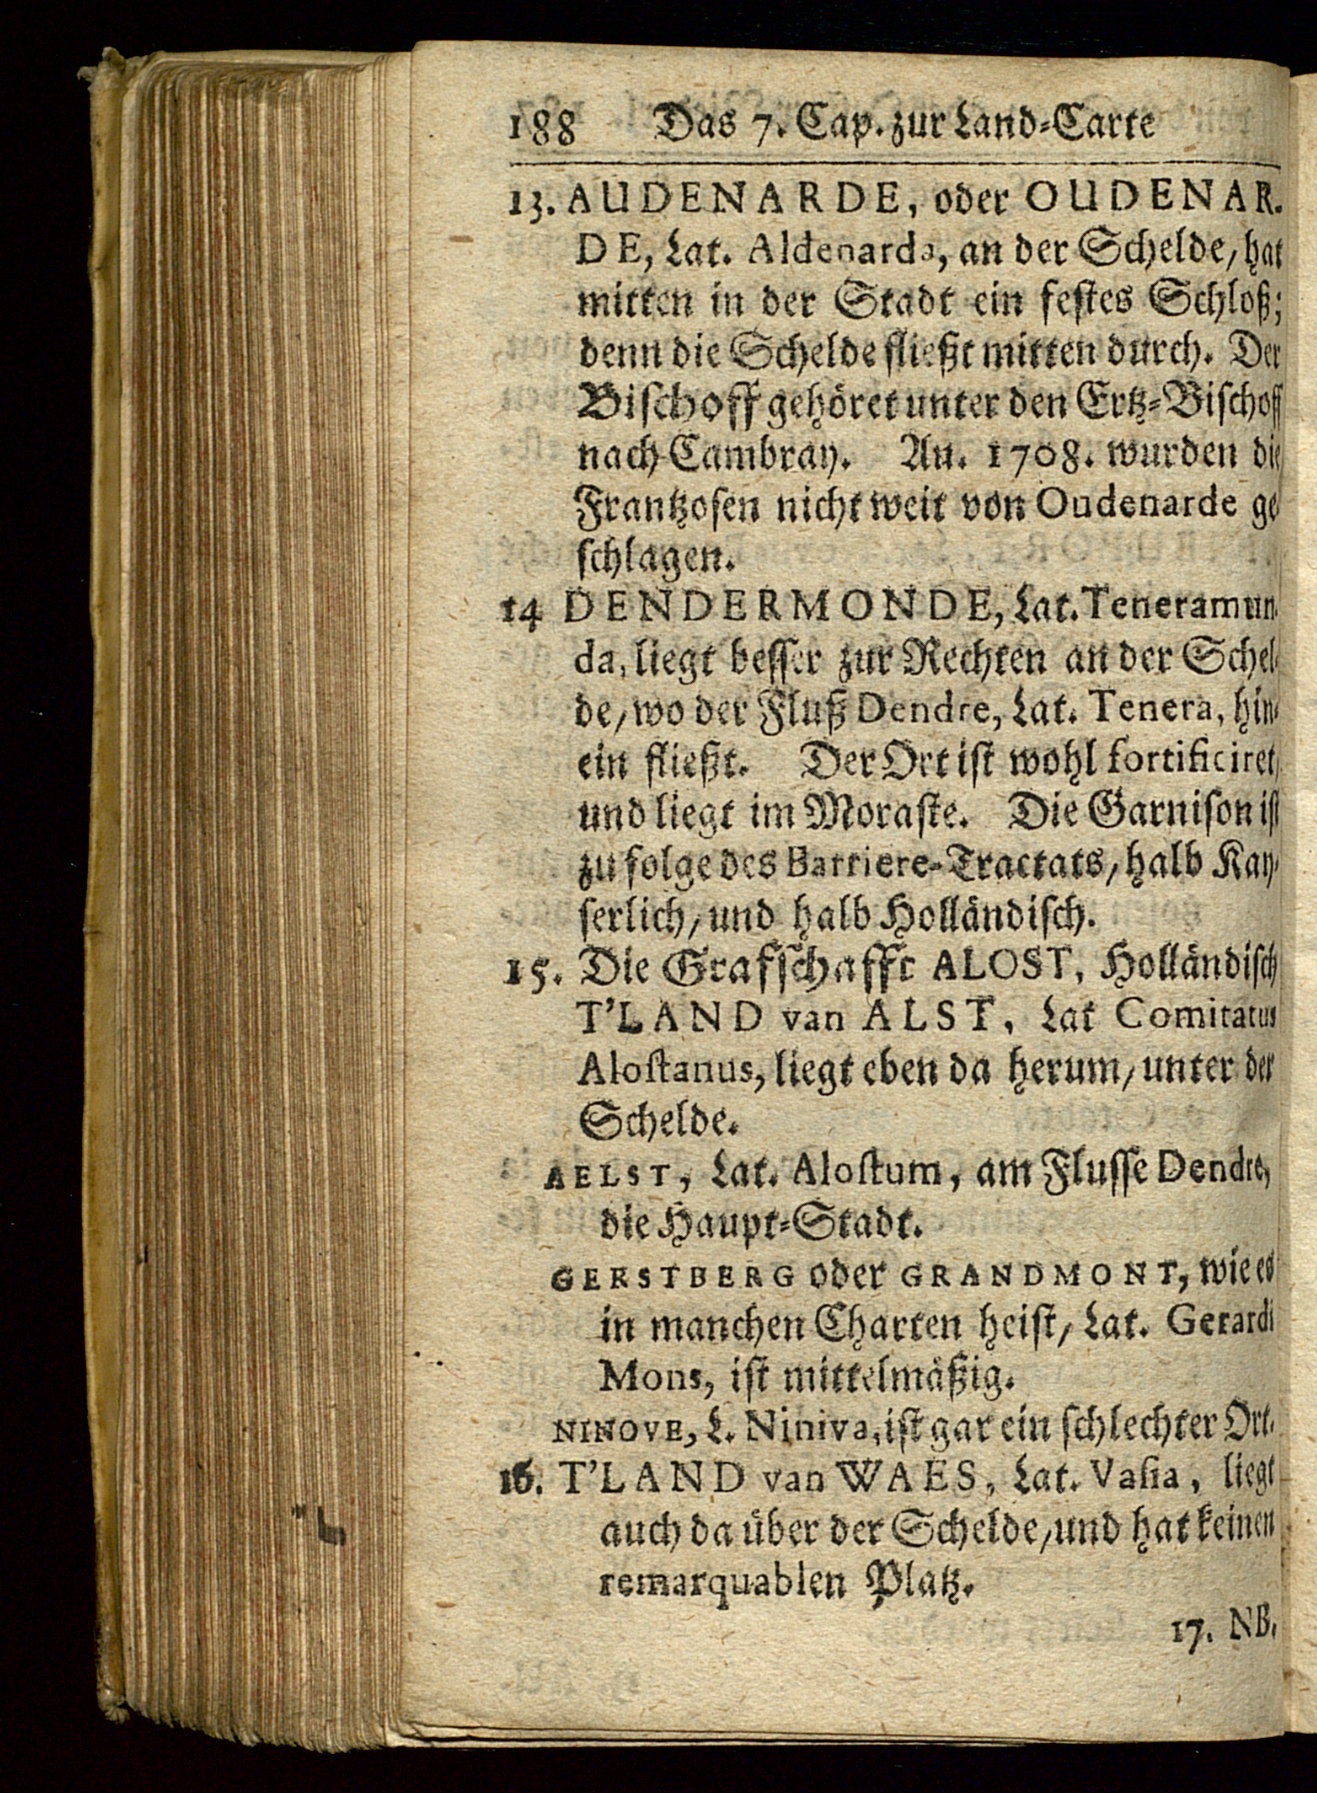 188 Das 7. Cap. zur Land-Carte
13. AUDENARDE, oder OUDENAR-
DE, Lat. Aldenarda, an der Schelde, hat
mitten in der Stadt ein festes Schloß;
denn die Schelde fließt mitten durch. Der
Bischoff gehöret unter den Ertz-Bischoff
nach Cambray. An. 1708. wurden die
Frantzosen nicht weit von Oudenarde ge-
schlagen.
14 DENDERMONDE, Lat. Teneramun-
da, liegt besser zur Rechten an der Schel-
de, wo der Fluß Dendre, Lat. Tenera, hin-
ein fließt. Der Ort ist wohl fortificiret,
und liegt im Moraste. Die Garnison ist
zu folge des Barriere-Tractats, halb Kay-
serlich, und halb Holländisch.
15. Die Grafschafft ALOST, Holländisch
T'LAND van ALST, Lat Comitatus
Alostanus, liegt eben da herum, unter der
Schelde.
AELST, Lat. Alostum, am Flusse Dendre,
die Haupt-Stadt.
GERSTBERG oder GRANDMONT, wie es
in manchen Charten heist, Lat. Gerardi
Mons, ist mittelmäßig.
NINOVE, L. Niniva, ist gar ein schlechter Ort.
16. T'LAND van WAES, Lat. Vasia, liegt
auch da über der Schelde, und hat keinen
remarquablen Platz.
17. NB.